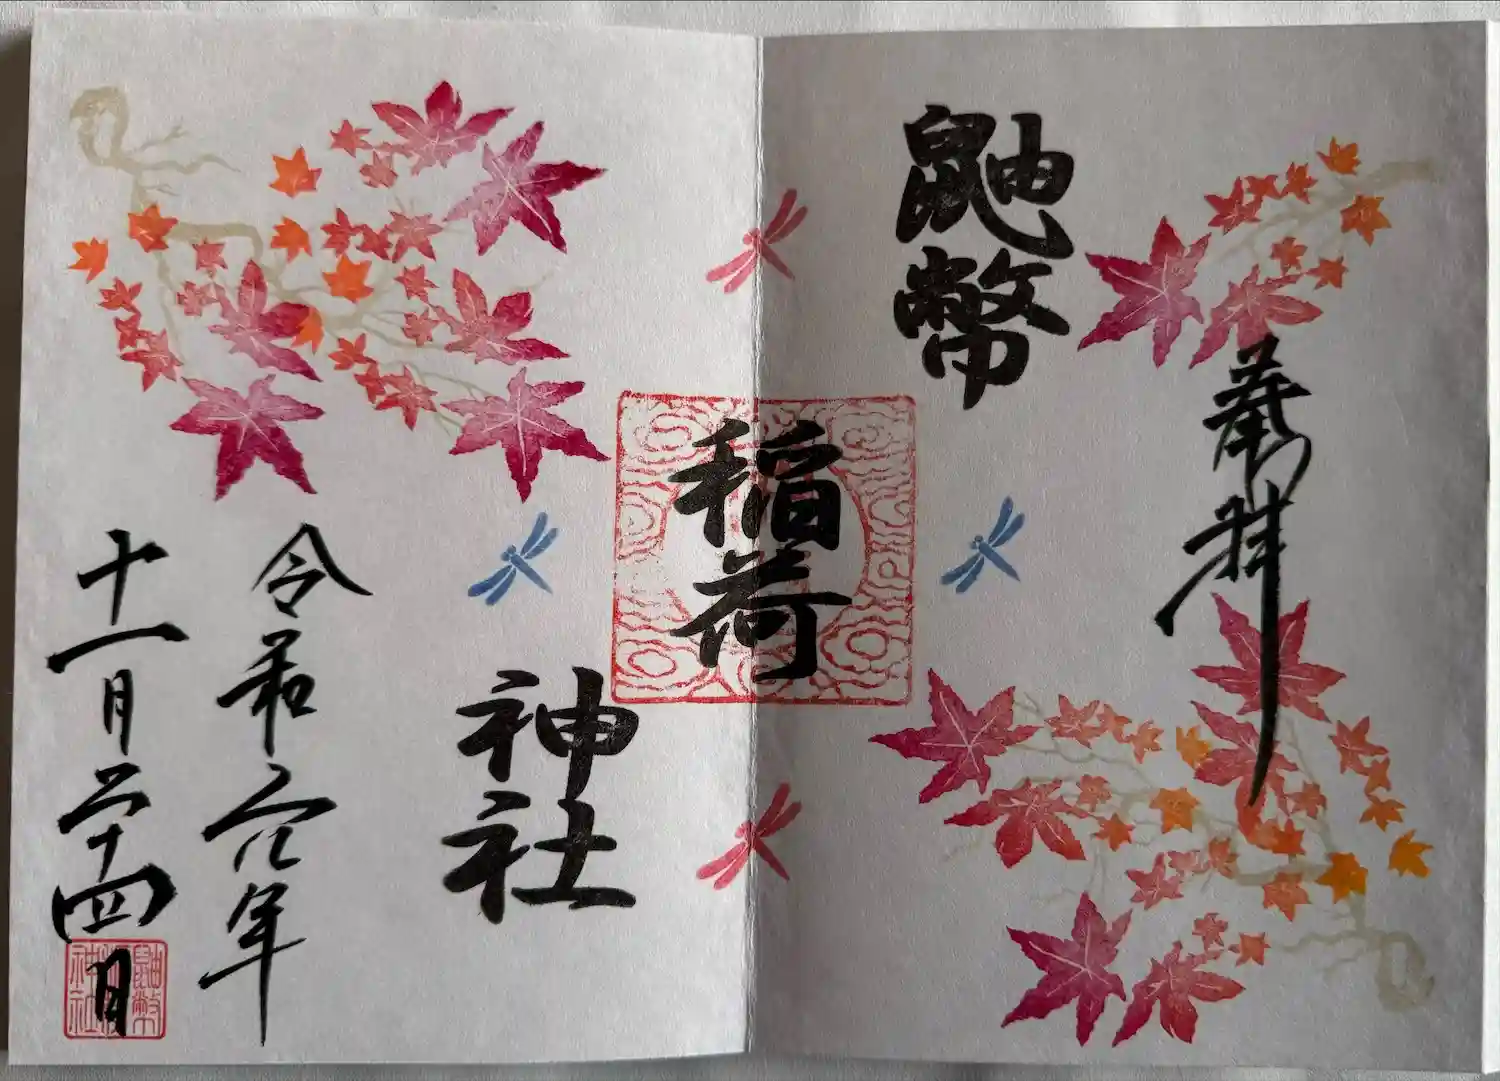 奉拝
鼬幣
稲荷
神社
令和六年
十一月二十四日
鼬幣
神社